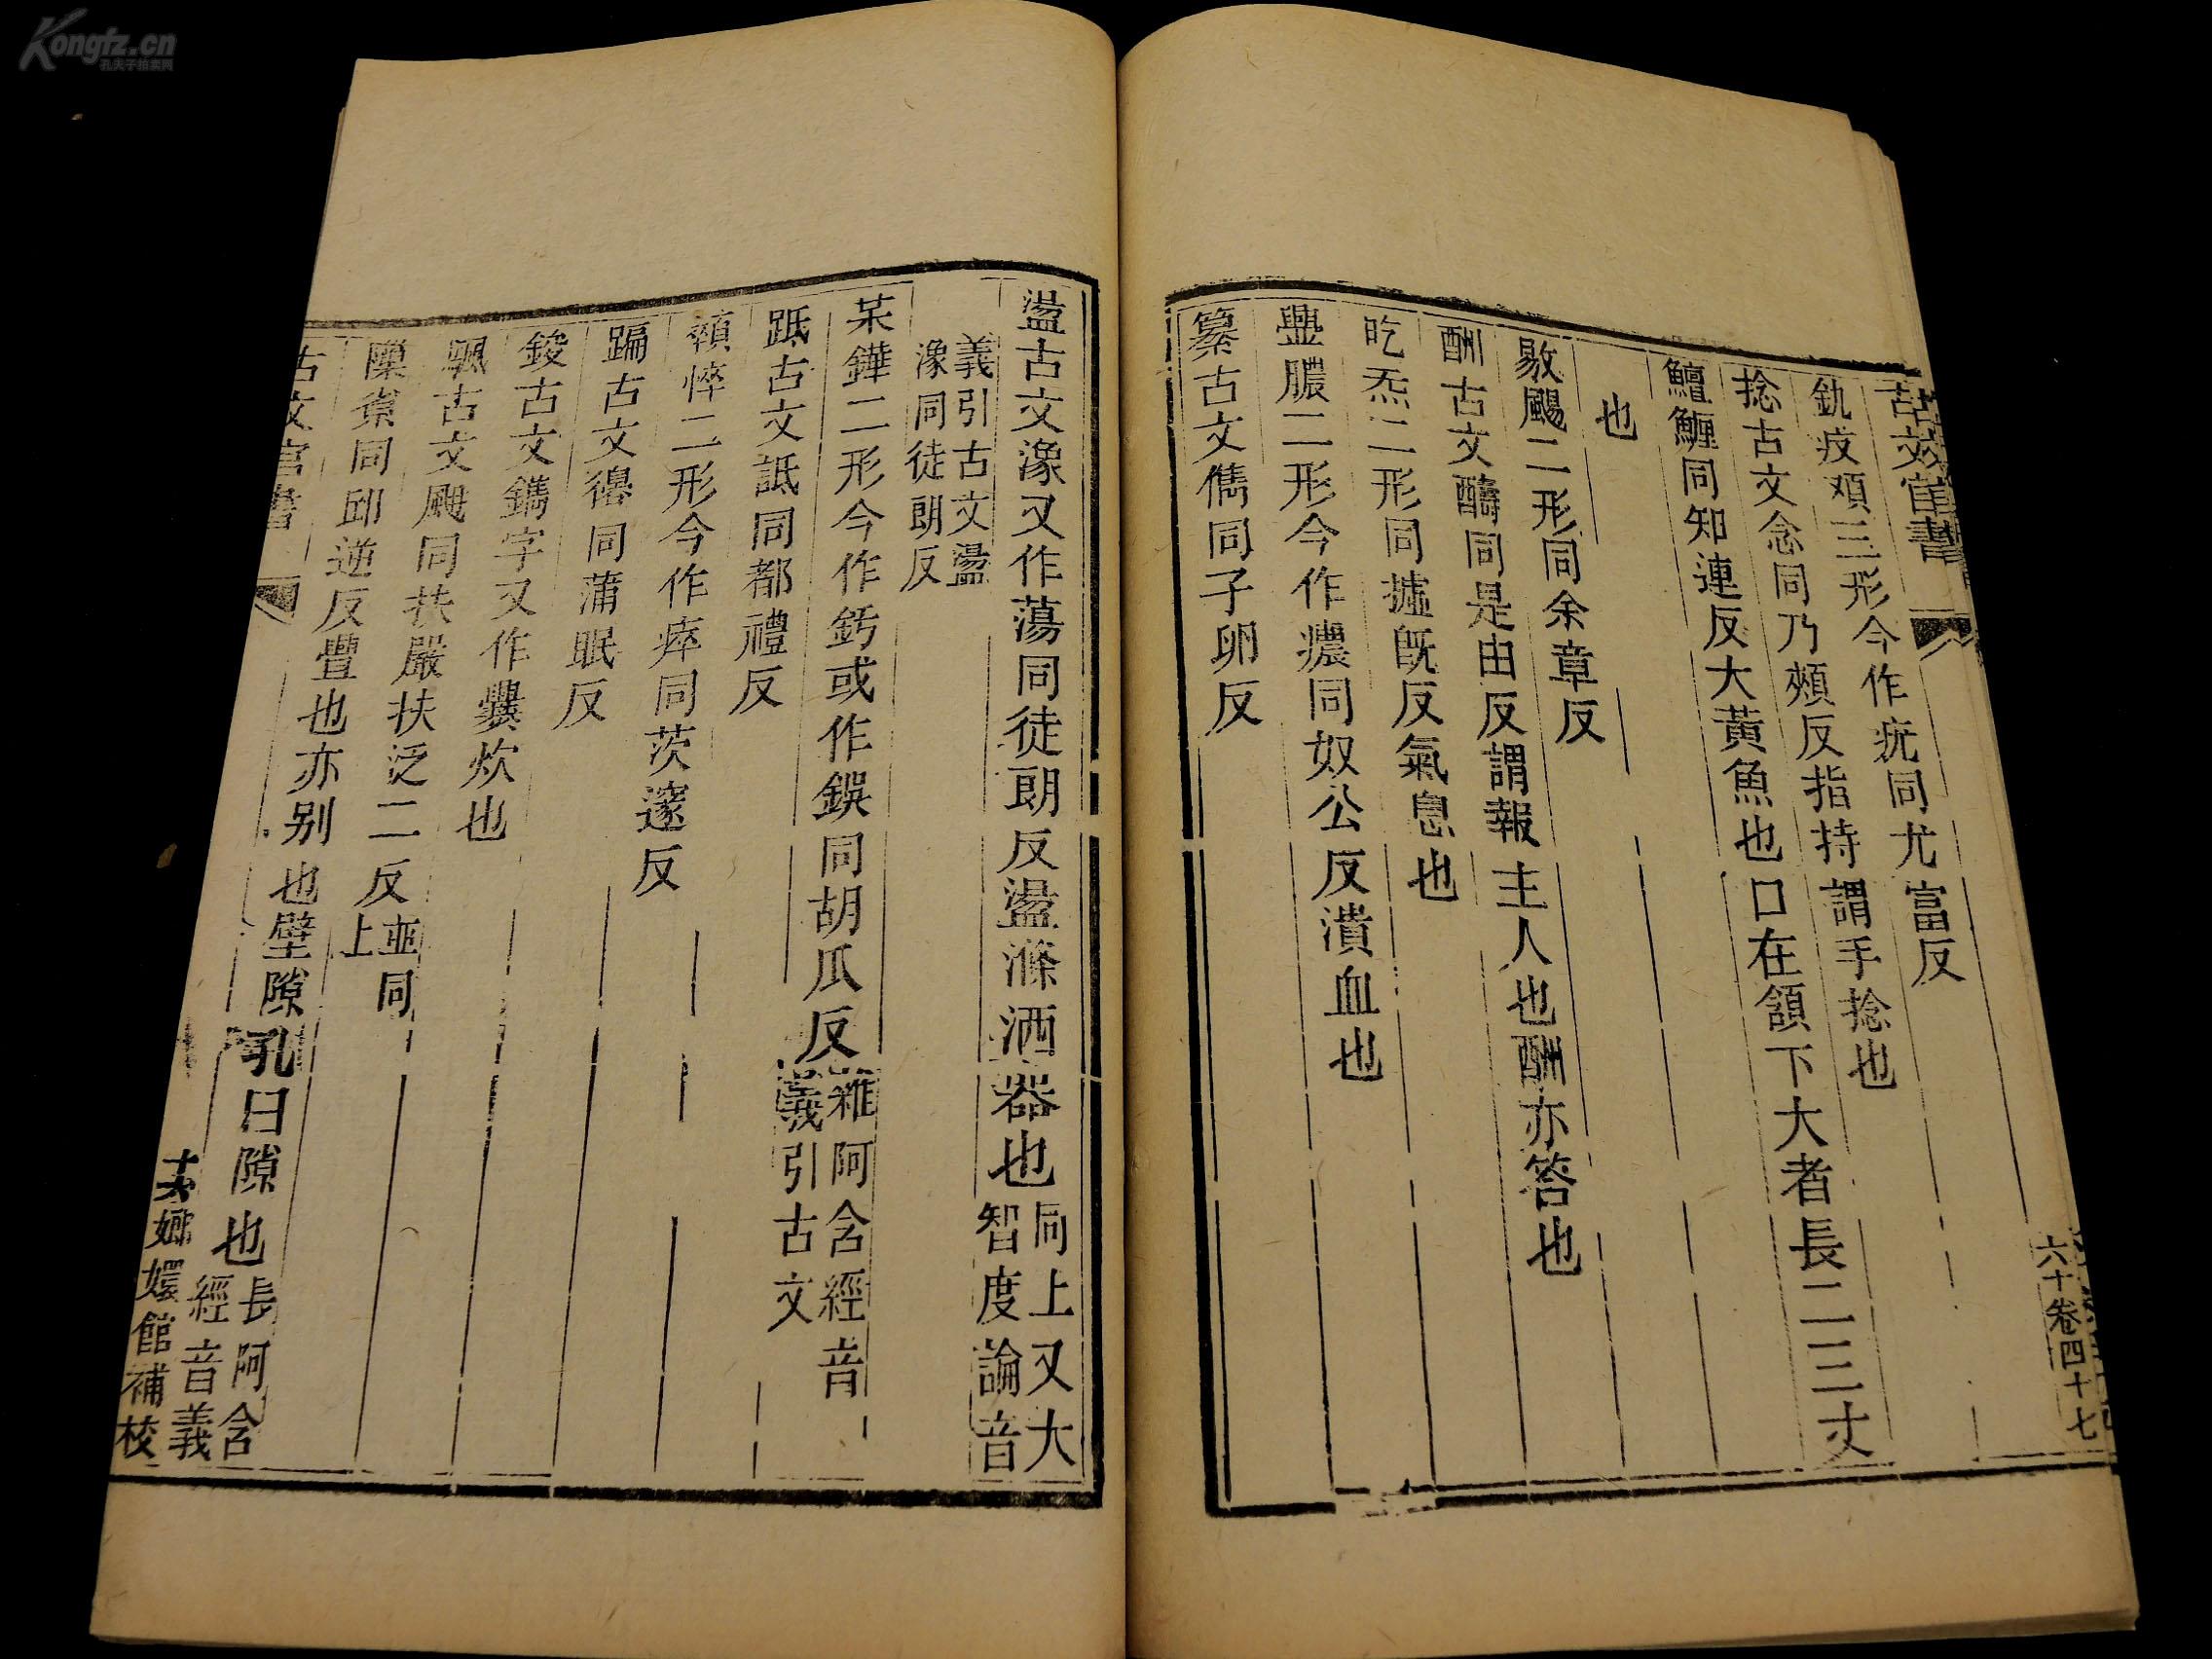 Kongfz.cn
孔夫子拍卖网
古文官書
六十卷四十七
釚疫疻三形今作疣同尤富反
捻古文念同乃頰反指持謂手捻也
鱣䱴同知連反大黃魚也口在頷下大者長二三丈
也
敭颺二形同余章反
酬古文醻同是由反謂報主人也酬亦答也
盵炁二形同墟旣反氣息也
膿二形今作癑同奴公反潰血也
纂古文儁同子卵反
盪古文潒又作蕩同徒朗反盪滌洒器也同上又大智度論音
義引古文盪潒同徒朗反
鏵二形今作釫或作鋘同胡瓜反雜阿含經音義引古文
䟡古文詆同都禮反
顇悴二形今作瘁同茨邃反
蹁古文同蒲眠反
鋑古文鐫字又作爨炊也
颿古文颿同扶嚴扶泛二反並同上
同邱逆反舋也亦别也壁隙孔曰隙也長阿含經音義
古文官書
嫏嬛館補校